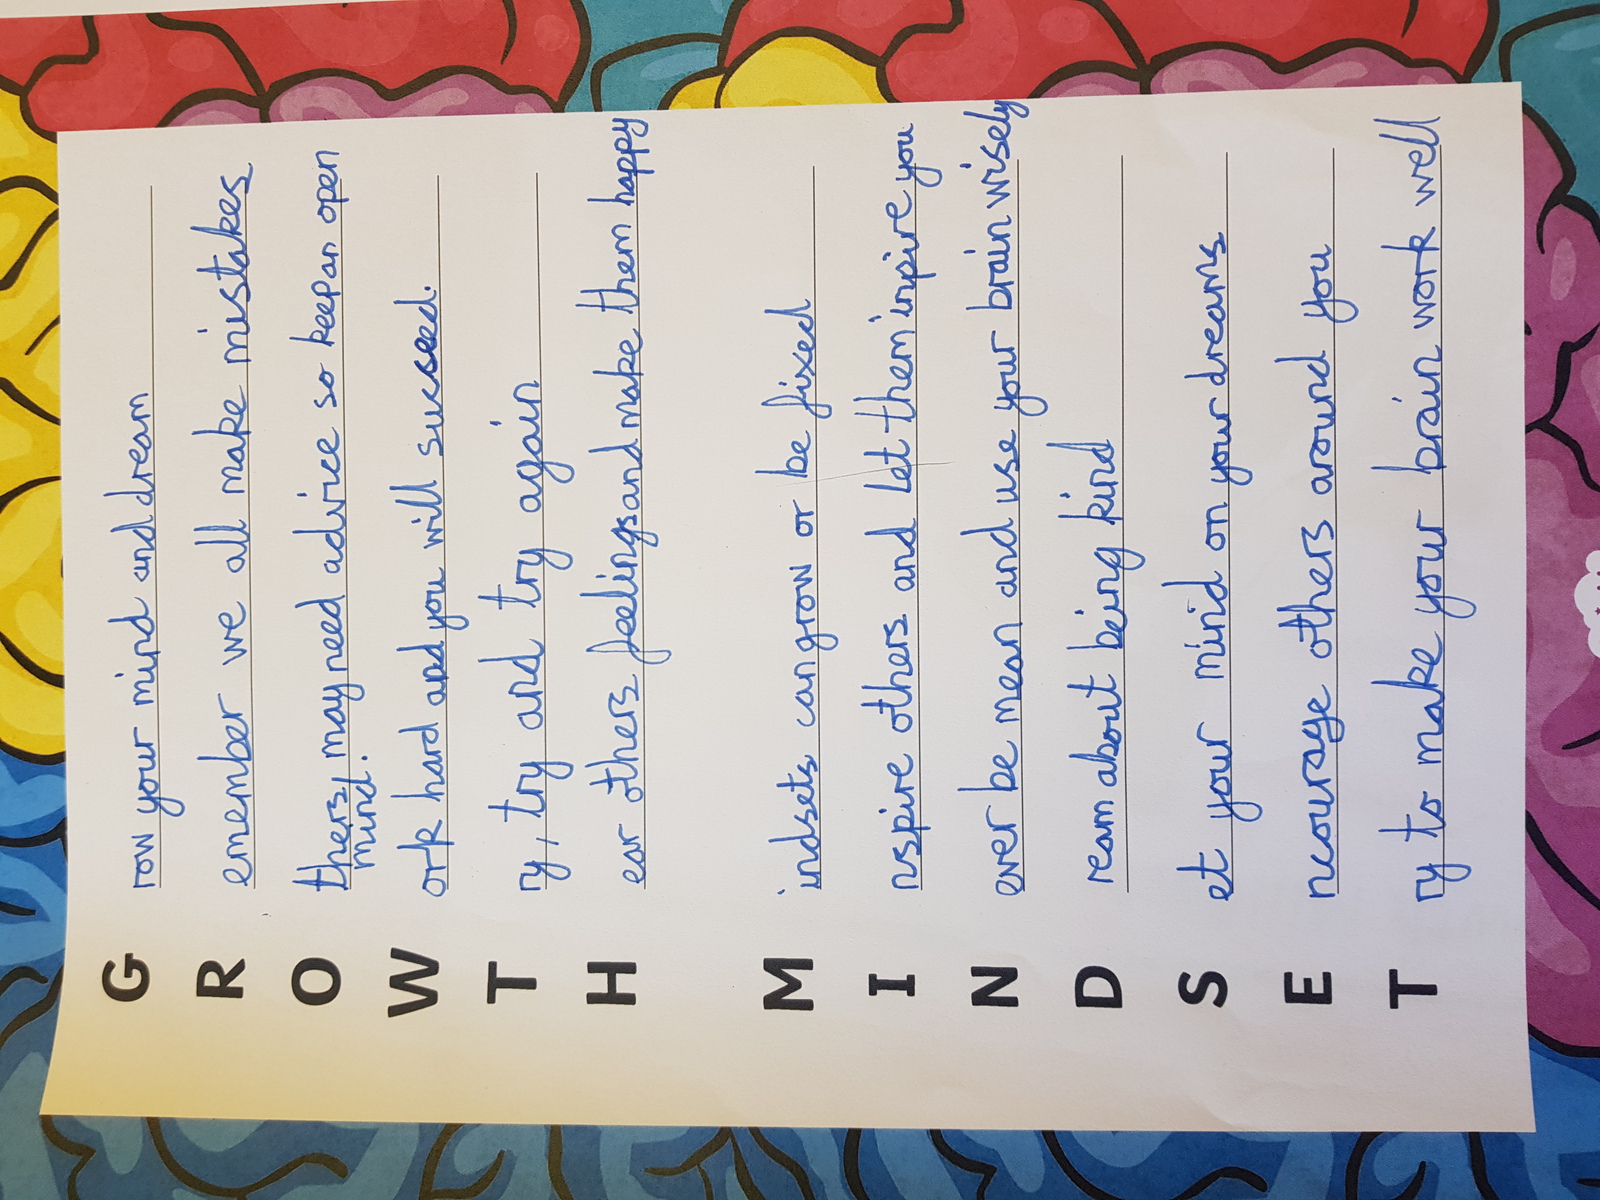 Grow your mind and dream
Remember we all make mistakes
Others may need advice so keep an open
mind.
Work hard and you will succeed.
Try, try and try again
Hear others feelings and make them happy
Mindsets can grow or be fixed
Inspire others and let them inspire you
Never be mean and use your brain wisely
Dream about being kind
Set your mind on your dreams
Encourage others around you
Try to make your brain work well